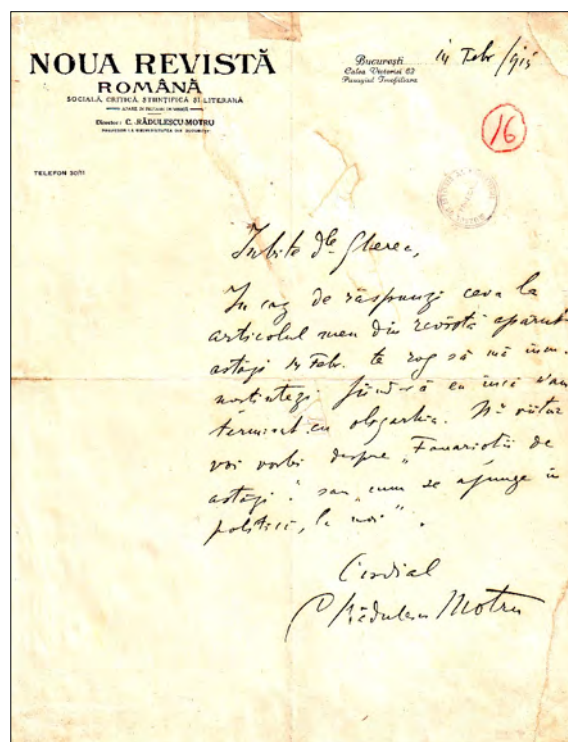 NOUA REVISTĂ
ROMÂNĂ
SOCIALĂ, CRITICĂ, ȘTIINȚIFICĂ ȘI LITERARĂ
Director: C. RĂDULESCU-MOTRU
PROFESOR LA UNIVERSITATEA DIN BUCUREȘTI
TELEFON 30/11
București
Calea Victoriei 62
Pasagiul Imobiliara
14 Febr/915
16
Iubite Dle Gherea,
In caz de răspunzi ceva la
articolul meu din revistă apărut
astăzi 14 Febr. te rog să mă
fiind-că eu încă n'am
terminat cu oligarhia. N-rul viitor
voi vorbi despre „Fanarioții de
astăzi" sau „cum se ajunge în
politică, la noi".
Cordial
C Rădulescu Motru